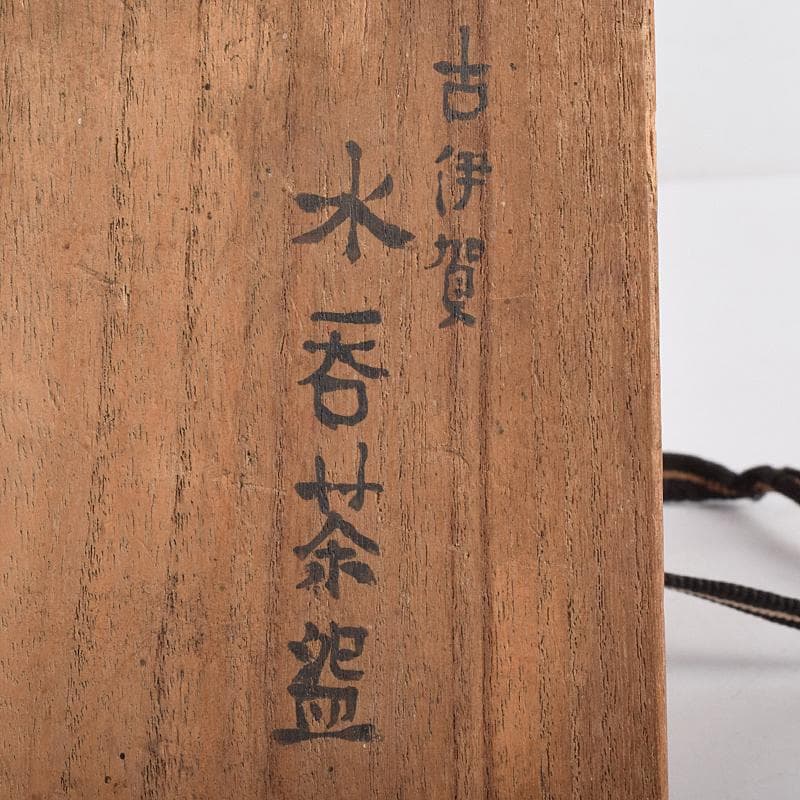 古伊賀
水呑茶盌